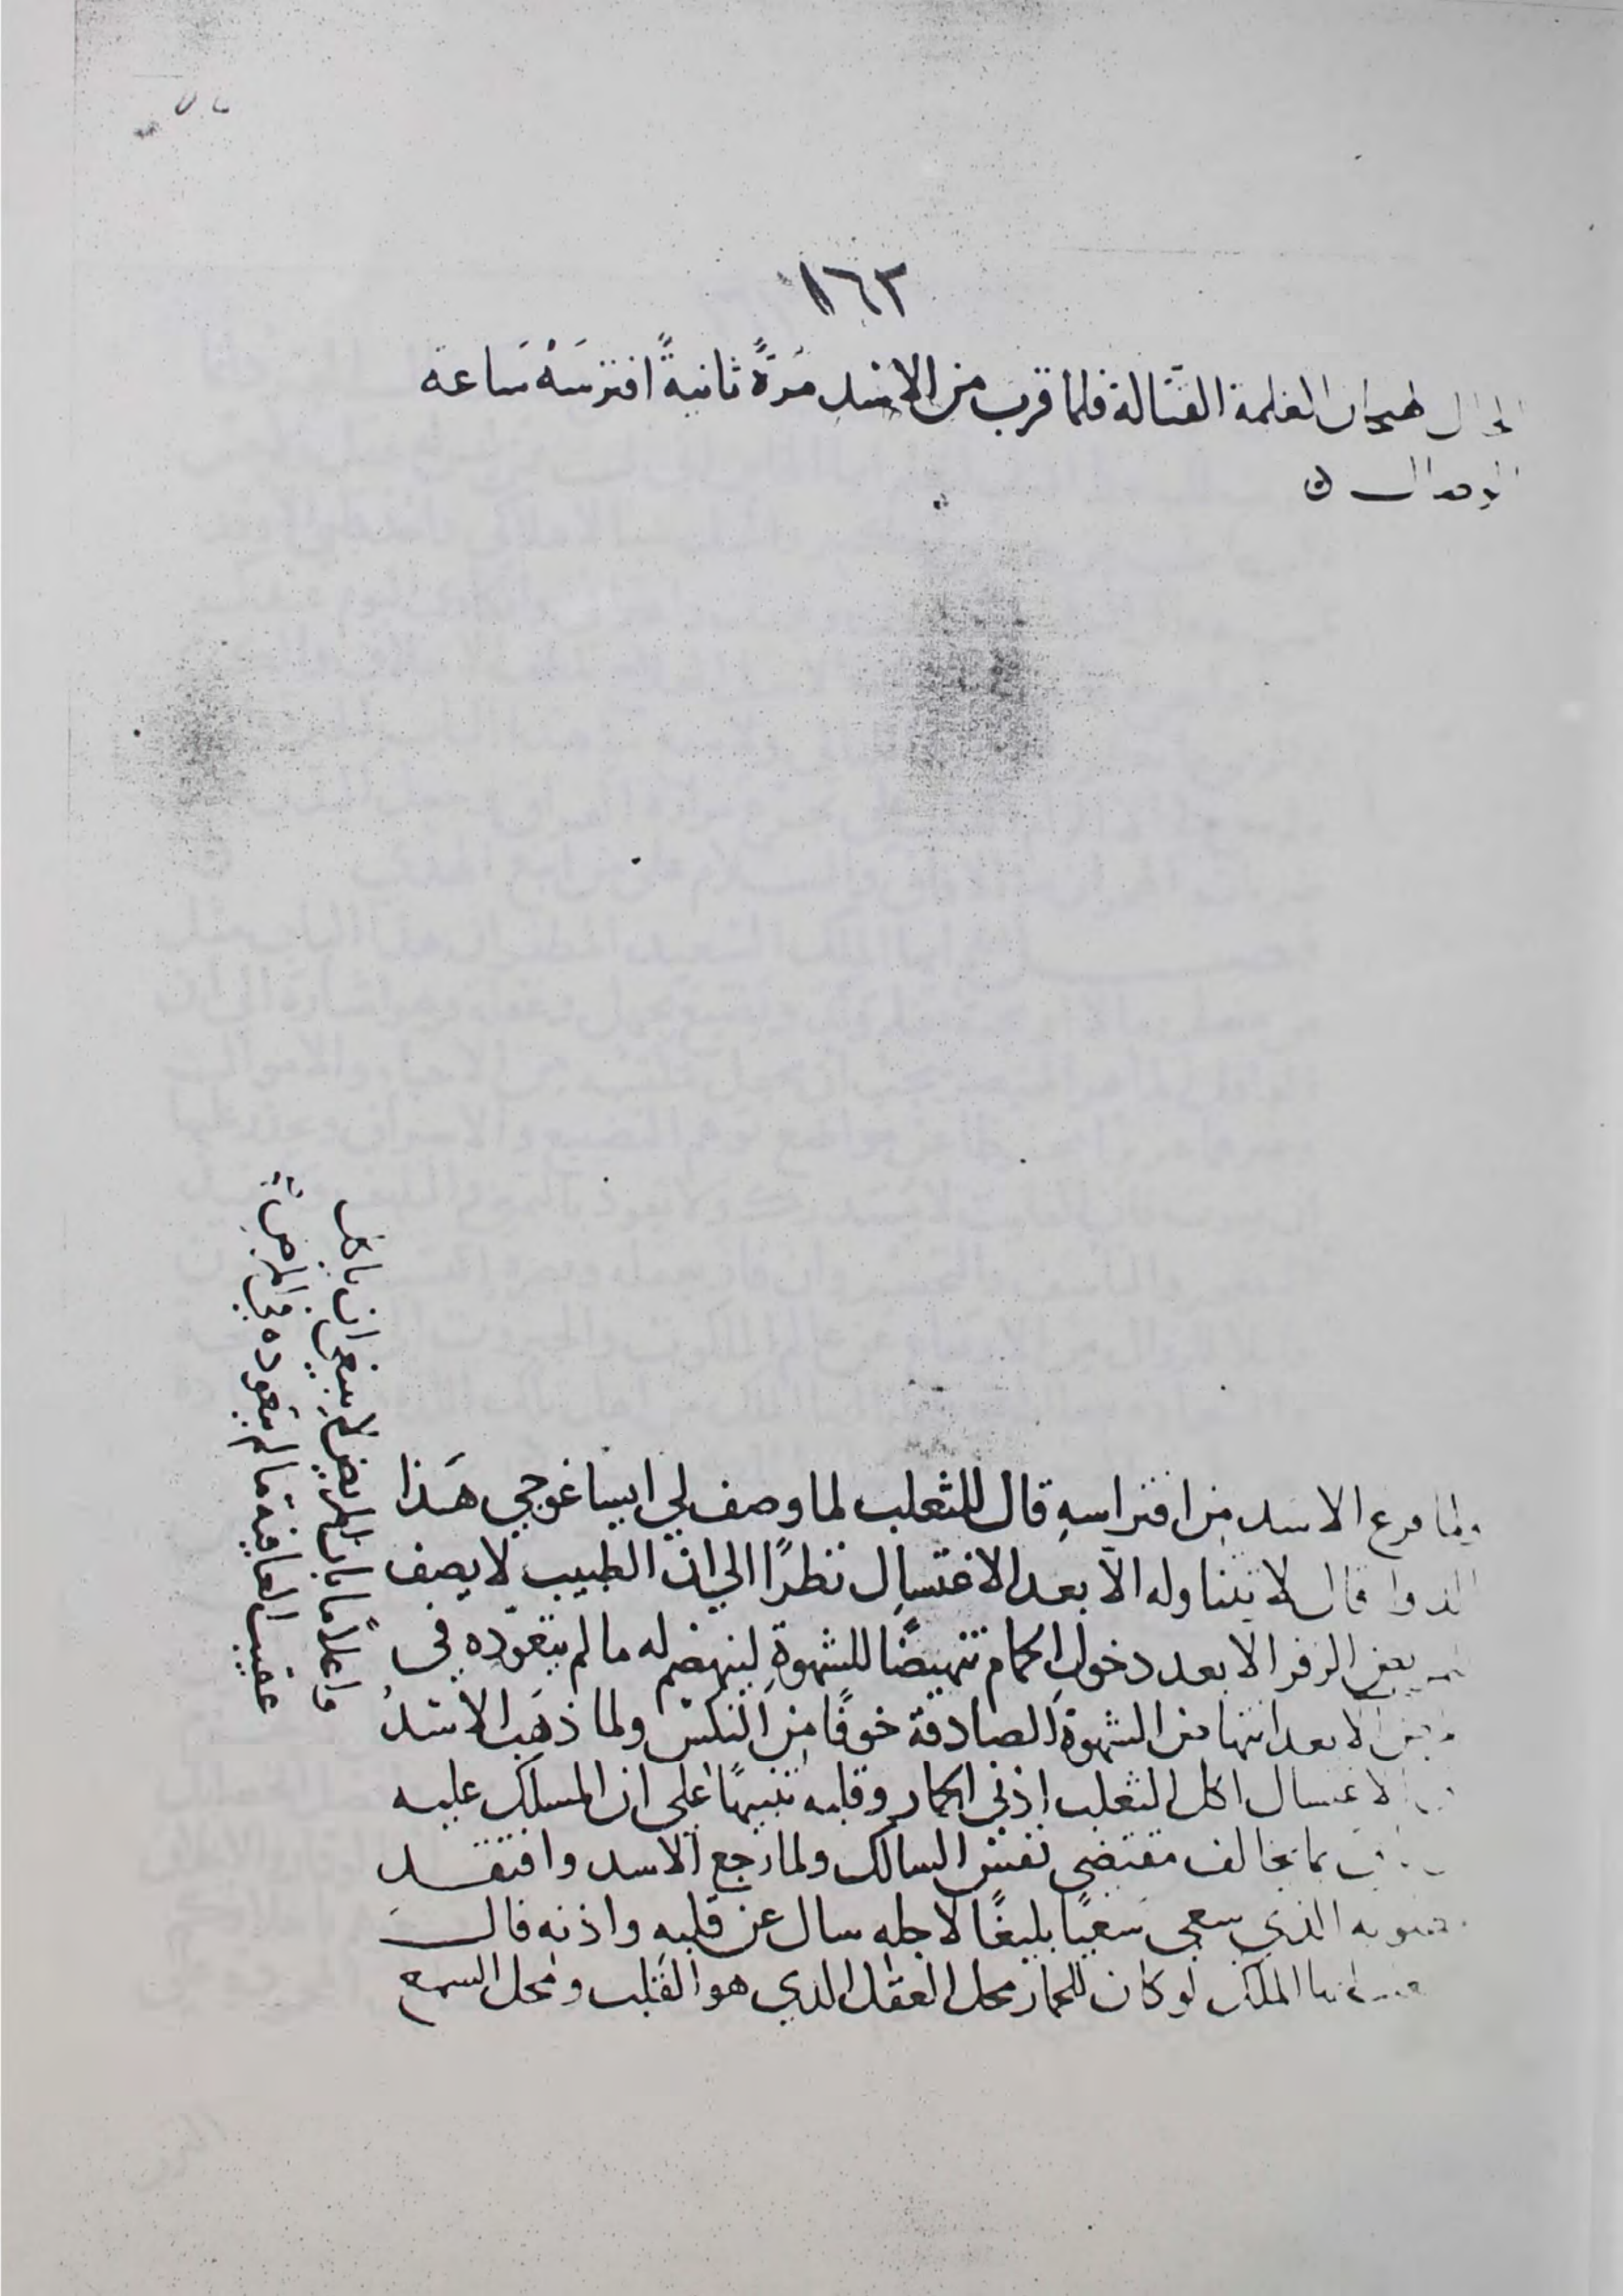 ١٦٢
الحال لهيجان الغلمة القتالة فلما قرب من الاسد مَرَّةً ثانيةً افترسَهُ سَاعة
ولما فرغ الاسد مِن افتراسهِ قال للثعلب لما وصف لي ايساغوجي هَذا
الدوا قال لا تتناوله الّا بعد الاغتسالِ نظرًا الي انّ الطبيب لا يصف
للمريض الزفر الا بعد دخولِ الحمام تنهيضًا للشهوةِ لينهضم له ما لم يتعوّده في
الا بعد انتها من الشهوةِ الصادقة خوفًا مِن النكس ولما ذهَب الاسَدُ
الاغتسال اكل الثعلب اذني الحمار وقلبه تنبيهًا على ان المسلك عليه
بما يخالف مقتضى نفس السالك ولما رجع الاسد وافتقد
الذي سعى سَعيًا بليغًا لاجله سال عن قلبهِ واذنه قال
الملك لو كان للحمار محل العقل الذي هو القلب ومحل السمع
واعلامًا بانّ المريض لا ينبغي ان ياكل
عقيب العافية ما لم يتعوده في المرض